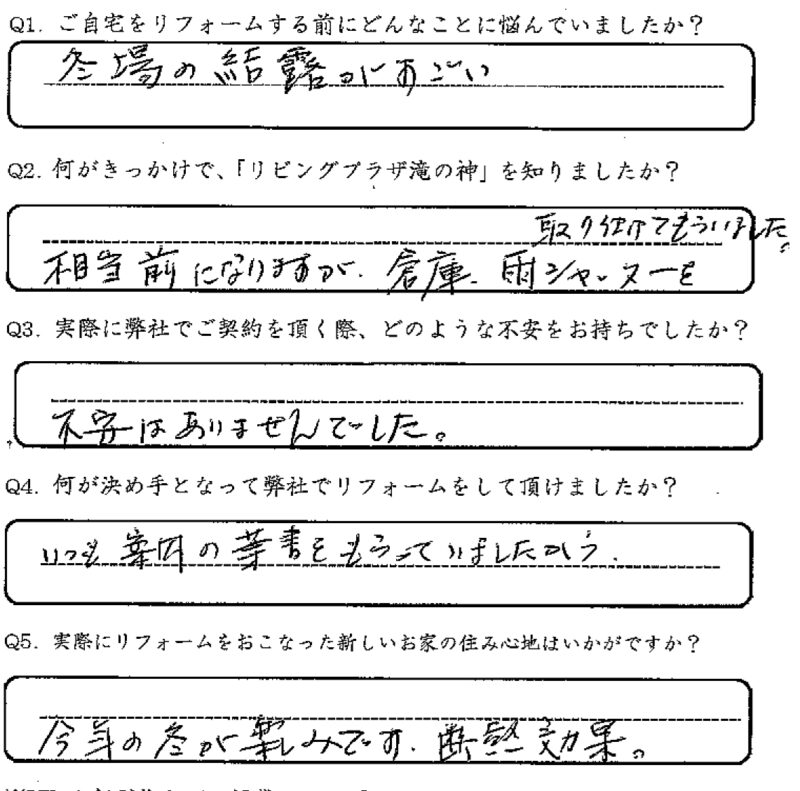 Q1. ご自宅をリフォームする前にどんなことに悩んでいましたか？
冬場の結露がすごい
Q2. 何がきっかけで、「リビングプラザ滝の神」を知りましたか？
相当前になりますが、倉庫、雨シャッターを
取り付けてもらいました。
Q3. 実際に弊社でご契約を頂く際、どのような不安をお持ちでしたか？
不安はありませんでした。
Q4. 何が決め手となって弊社でリフォームをして頂けましたか？
いつも案内の葉書をもらっていましたから.
Q5. 実際にリフォームをおこなった新しいお家の住み心地はいかがですか？
今年の冬が楽しみです. 断熱効果。